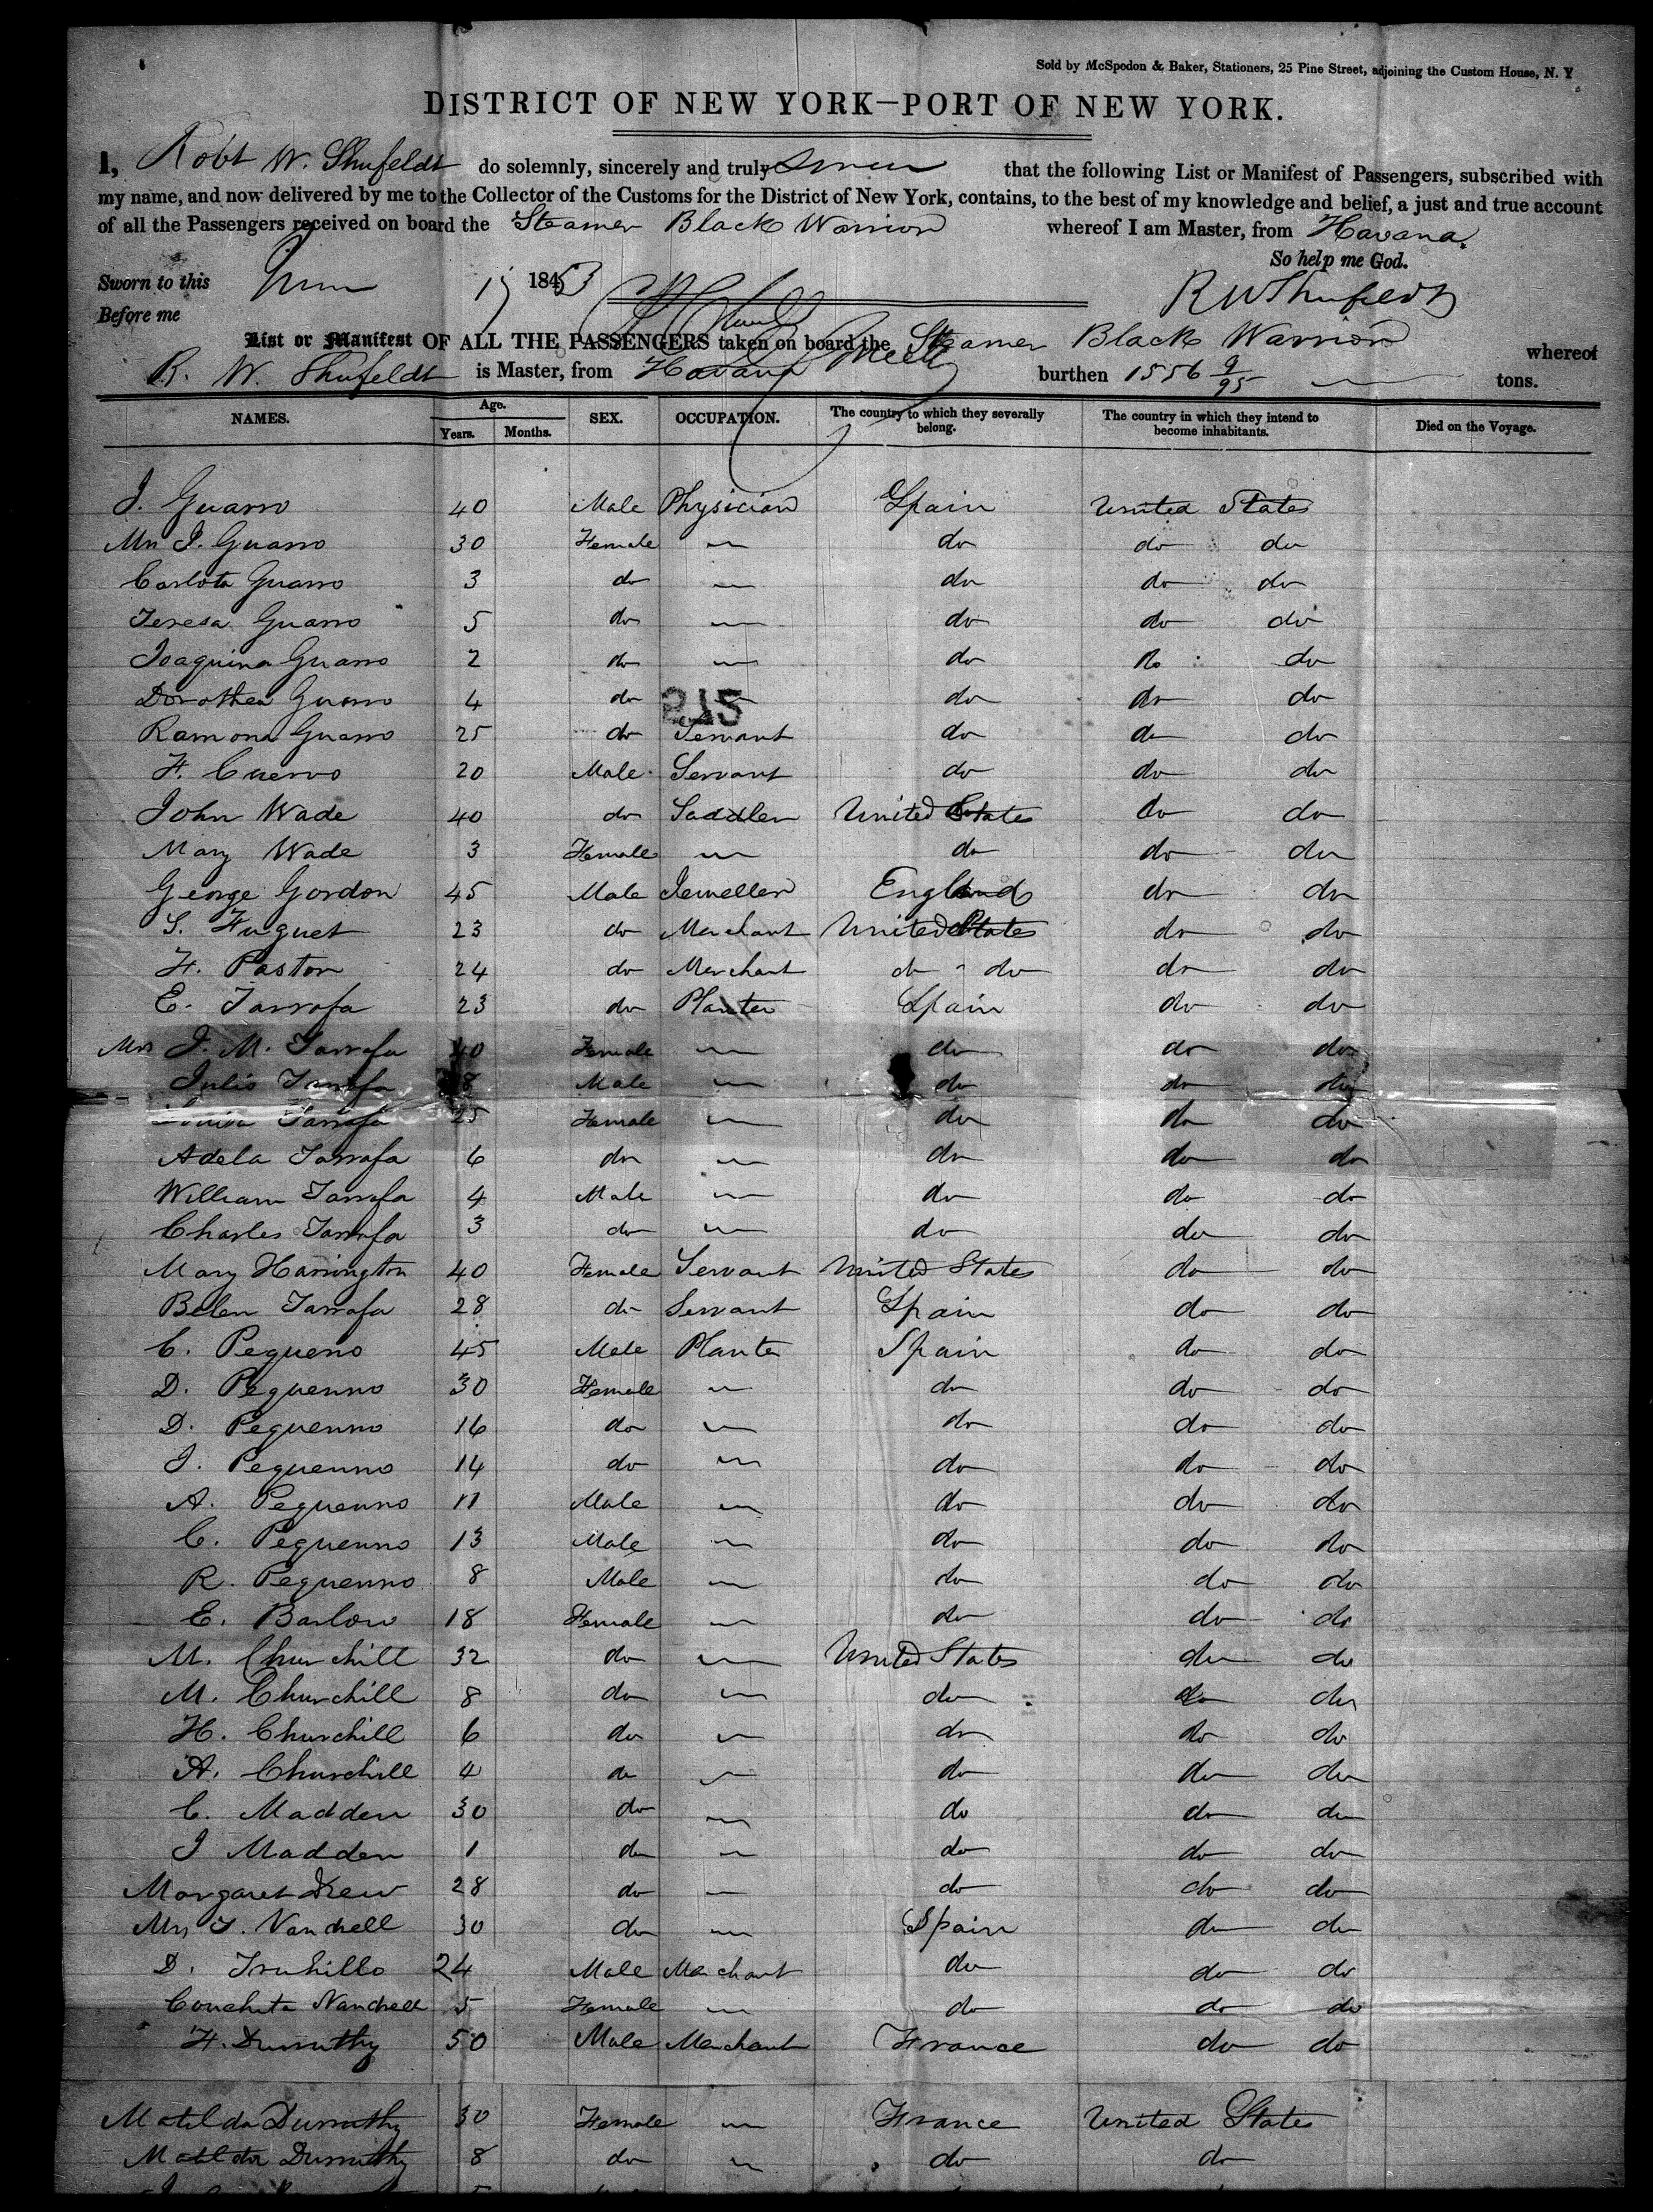 Sold by McSpedon & Baker, Stationers, 25 Pine Street, adjoining the Custom House, N. Y
DISTRICT OF NEW YORK—PORT OF NEW YORK.
I, Robt W. Shufeldt do solemnly, sincerely and truly swear that the following List or Manifest of Passengers, subscribed with
my name, and now delivered by me to the Collector of the Customs for the District of New York, contains, to the best of my knowledge and belief, a just and true account
of all the Passengers received on board the Steamer Black Warrior whereof I am Master, from Havana.
So help me God.
Sworn to this June 1853
R W Shufeldt
Before me
List or Manifest OF ALL THE PASSENGERS taken on board the Steamer Black Warrior whereof
R. W. Shufeldt is Master, from Havana burthen 1556 9/95 tons.
NAMES. Age. Years. Months. SEX. OCCUPATION. The country to which they severally belong. The country in which they intend to become inhabitants. Died on the Voyage.
J. Guarro 40 Male Physician Spain United States
Mrs J. Guarro 30 Female — do do do
Carlota Guarro 3 do — do do do
Teresa Guarro 5 do — do do do
Joaquina Guarro 2 do — do do do
Dorothea Guarro 4 do — do do do
215
Ramona Guarro 25 do Servant do do do
F. Cuervo 20 Male Servant do do do
John Wade 40 do Saddler United States do do
Mary Wade 3 Female — do do do
George Gordon 45 Male Jeweller England do do
S. Fuguet 23 do Merchant United States do do
F. Pastor 24 do Merchant do do do do
E. Tarrafa 23 do Planter Spain do do
Mrs J. M. Tarrafa 40 Female — do do do
Julio Tarrafa 8 Male — do do do
Tarrafa 25 Female — do do do
Adela Tarrafa 6 do — do do do
William Tarrafa 4 Male — do do do
Charles Tarrafa 3 do — do do do
Mary Harrington 40 Female Servant United States do do
Belen Tarrafa 28 do Servant Spain do do
C. Pequeno 45 Male Planter Spain do do
D. Pequenno 30 Female — do do do
D. Pequenno 16 do — do do do
J. Pequenno 14 do — do do do
A. Pequenno 11 Male — do do do
C. Pequenno 13 Male — do do do
R. Pequenno 8 Male — do do do
E. Barlow 18 Female — do do do
M. Churchill 32 do — United States do do
M. Churchill 8 do — do do do
H. Churchill 6 do — do do do
A. Churchill 4 do — do do do
C. Madden 30 do — do do do
J Madden 1 do — do do do
Margaret Drew 28 do — do do do
Mrs T. Nandrell 30 do — Spain do do
D. Truhillo 24 Male Merchant do do do
Conchita Nandrell 5 Female — do do do
F. Dumuthy 50 Male Merchant France do do
Matilda Dumuthy 30 Female — France United States
Matilda Dumuthy 8 do — do do